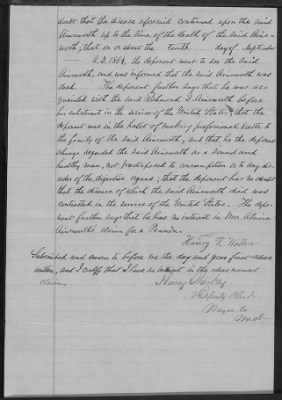 doubt that the disease aforesaid continued upon the said
Ainsworth up to the time of the death of the said Ains-
worth; that on or about the tenth day of September
A.D. 1864, the deponent went to see the said
Ainsworth, and was informed that the said Ainsworth was
dead. The deponent further says that he was ac-
quainted with the said Richmond D. Ainsworth before
his enlistment in the service of the United States; that the
deponent was in the habit of making professional visits to
the family of the said Ainsworth, and that he the deponent
always regarded the said Ainsworth as a sound and
healthy man, not predisposed to consumption or to any dis-
order of the digestive organs; that the deponent has no doubt
that the disease of which the said Ainsworth died was
contracted in the service of the United States. The depo-
nent further says that he has no interest in Mrs Almira
Ainsworth's claim for a Pension.
Henry F.
Subscribed and sworn to before me the day and year first above
written, and I certify that I have no interest in the above named
claim.
Henry
Deputy Clerk
Wayne Co